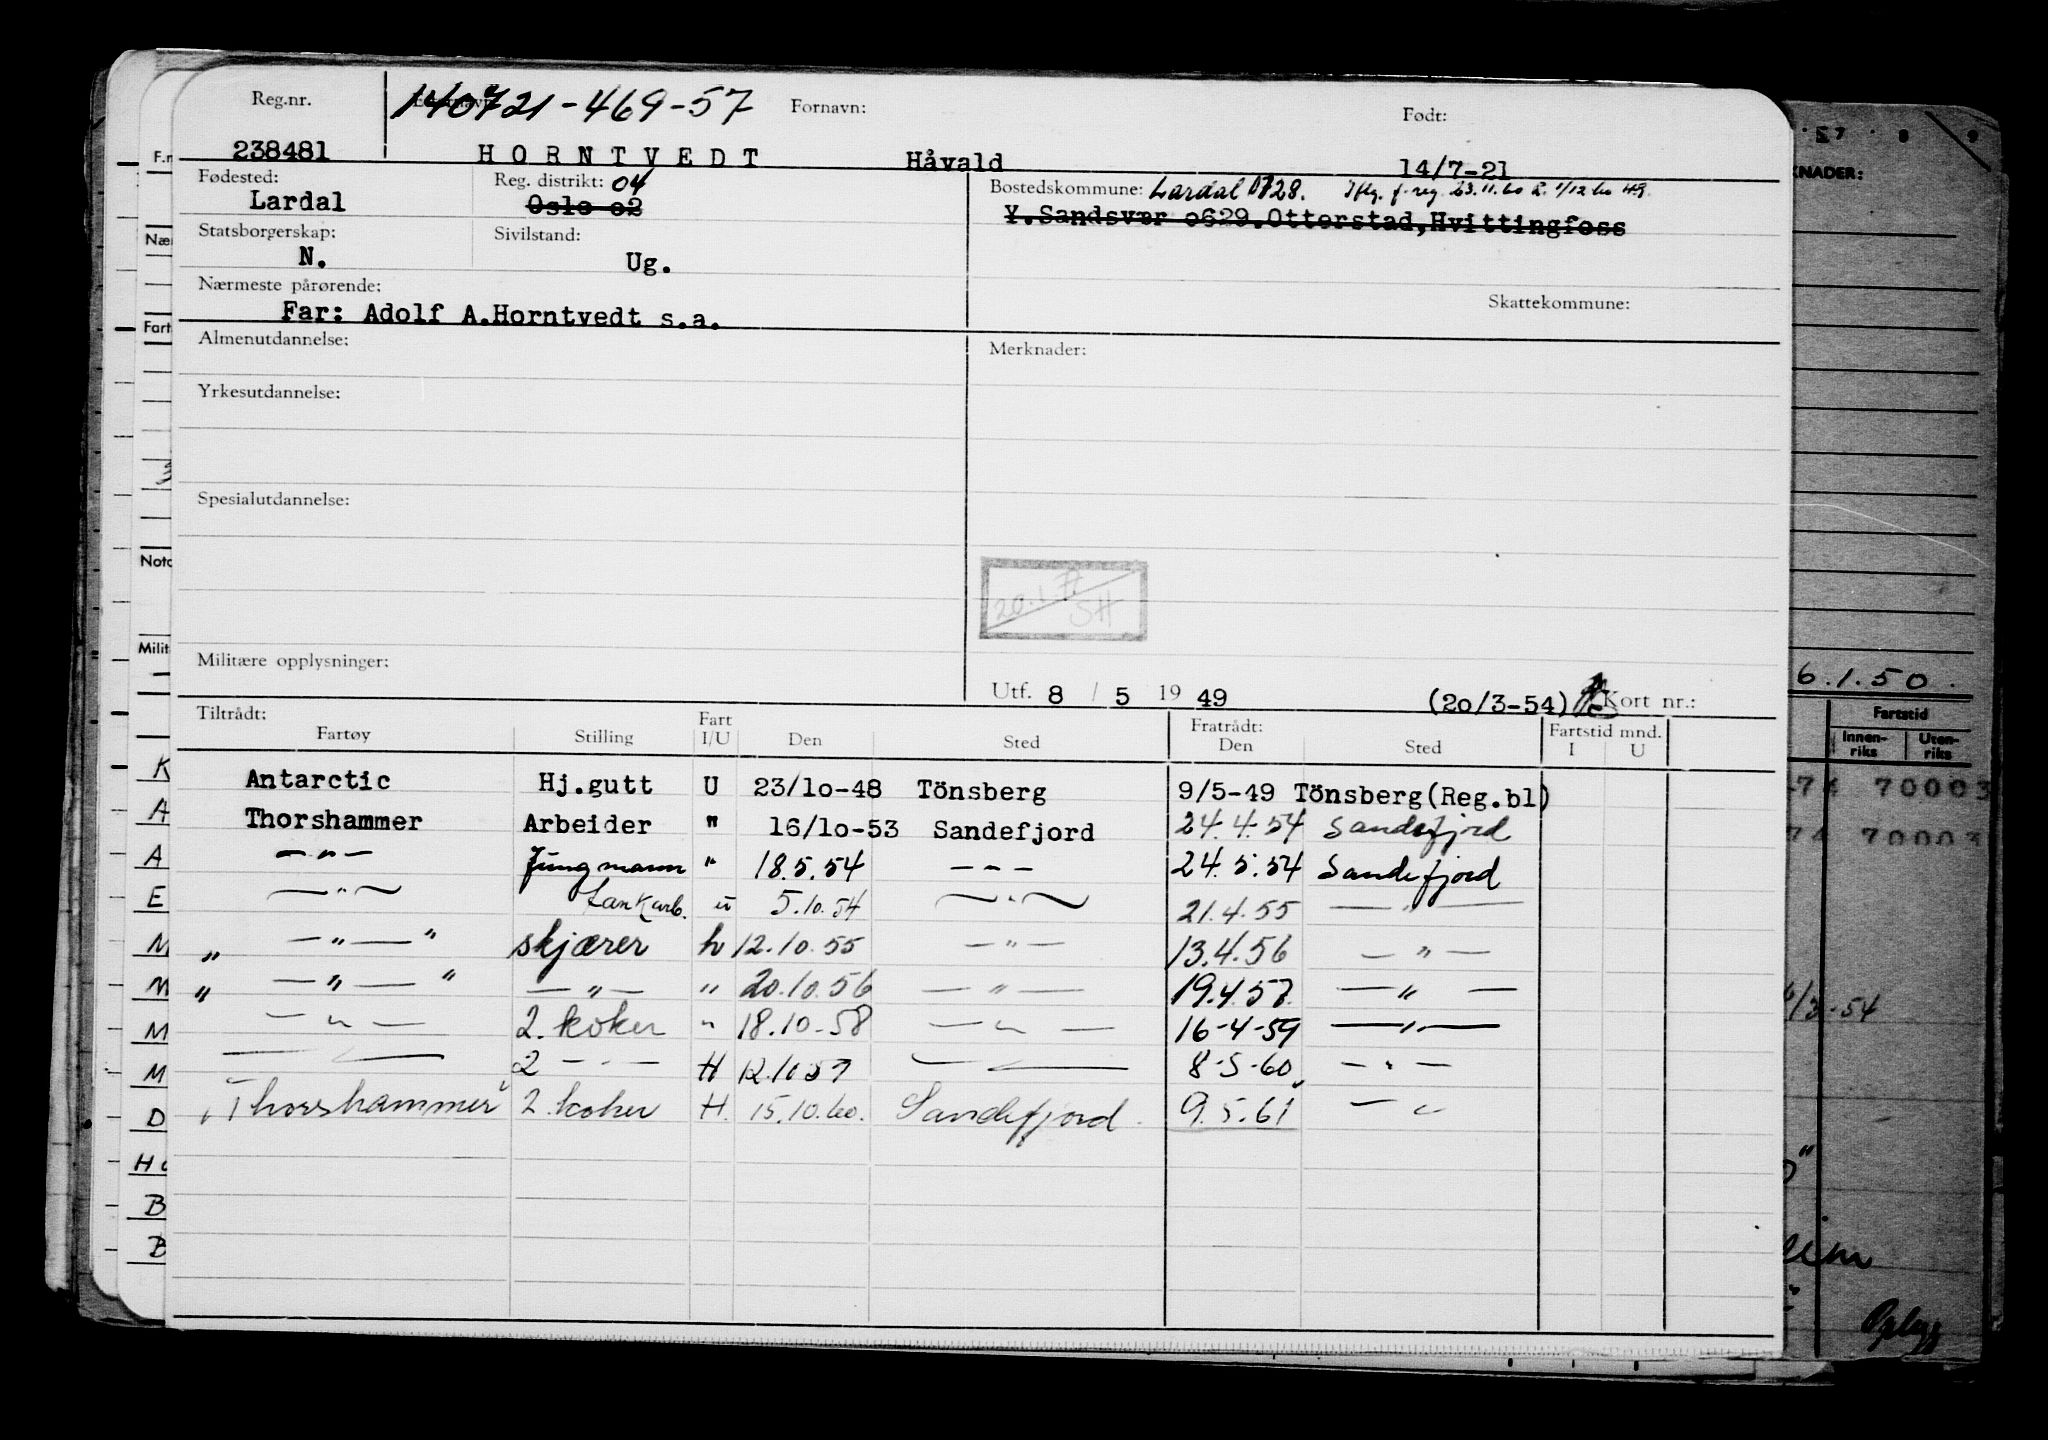 Reg.nr. 140721-469-57 Fornavn: Født:
238481 HORNTVEDT Håvald 14/7-21
Fødested: Reg. distrikt: 04 Bostedskommune: Lardal 0728. Iflg. f. reg. 23.11.60 Å. 1/12 60 Hg.
Lardal Oslo o2 Y.Sandsvær o629.Otterstad,Hvittingfoss
Statsborgerskap: Sivilstand:
N. Ug.
Nærmeste pårørende: Skattekommune:
Far: Adolf A.Horntvedt s.a.
Almenutdannelse: Merknader:
Yrkesutdannelse:
Spesialutdannelse:
20.1.77
SH
Militære opplysninger:
Utf. 8 / 5 19 49 (2o/3-54) Kort nr.:
Tiltrådt: Fart Fratrådt: Fartstid mnd.
Fartøy Stilling I/U Den Sted Den Sted I U
Antarctic Hj.gutt U 23/1o-48 Tönsberg 9/5-49 Tönsberg(Reg.bl)
Thorshammer Arbeider " 16/1o-53 Sandefjord 24.4.54 Sandefjord
— " — Jungmann " 18.5.54 — — — 24.5.54 Sandefjord
— " — Tankarb. " 5.10.54 — " — 21.4.55 — " —
" — " — " skjærer h 12.10.55 — " — 13.4.56 — " —
" — " — " — " — " 20.10.56 — " — 19.4.57. — " —
— " — 2. koker " 18.10-58 — " — 16-4-59 — " —
— " — 2 — " — H 12.10 59 — " — 8-5-60 — " —
"Thorshammer" 2. koker H. 15.10.60. Sandefjord. 9.5.61 — " —
F.n
Nær
Fart
Nota
Milit
K
A
A
E
M
M
M
M
D
H
B
B
KNADER:
6.1.50.
Fartstid
Innen-riks Uten-riks
74 70003
74 70003
/3-54